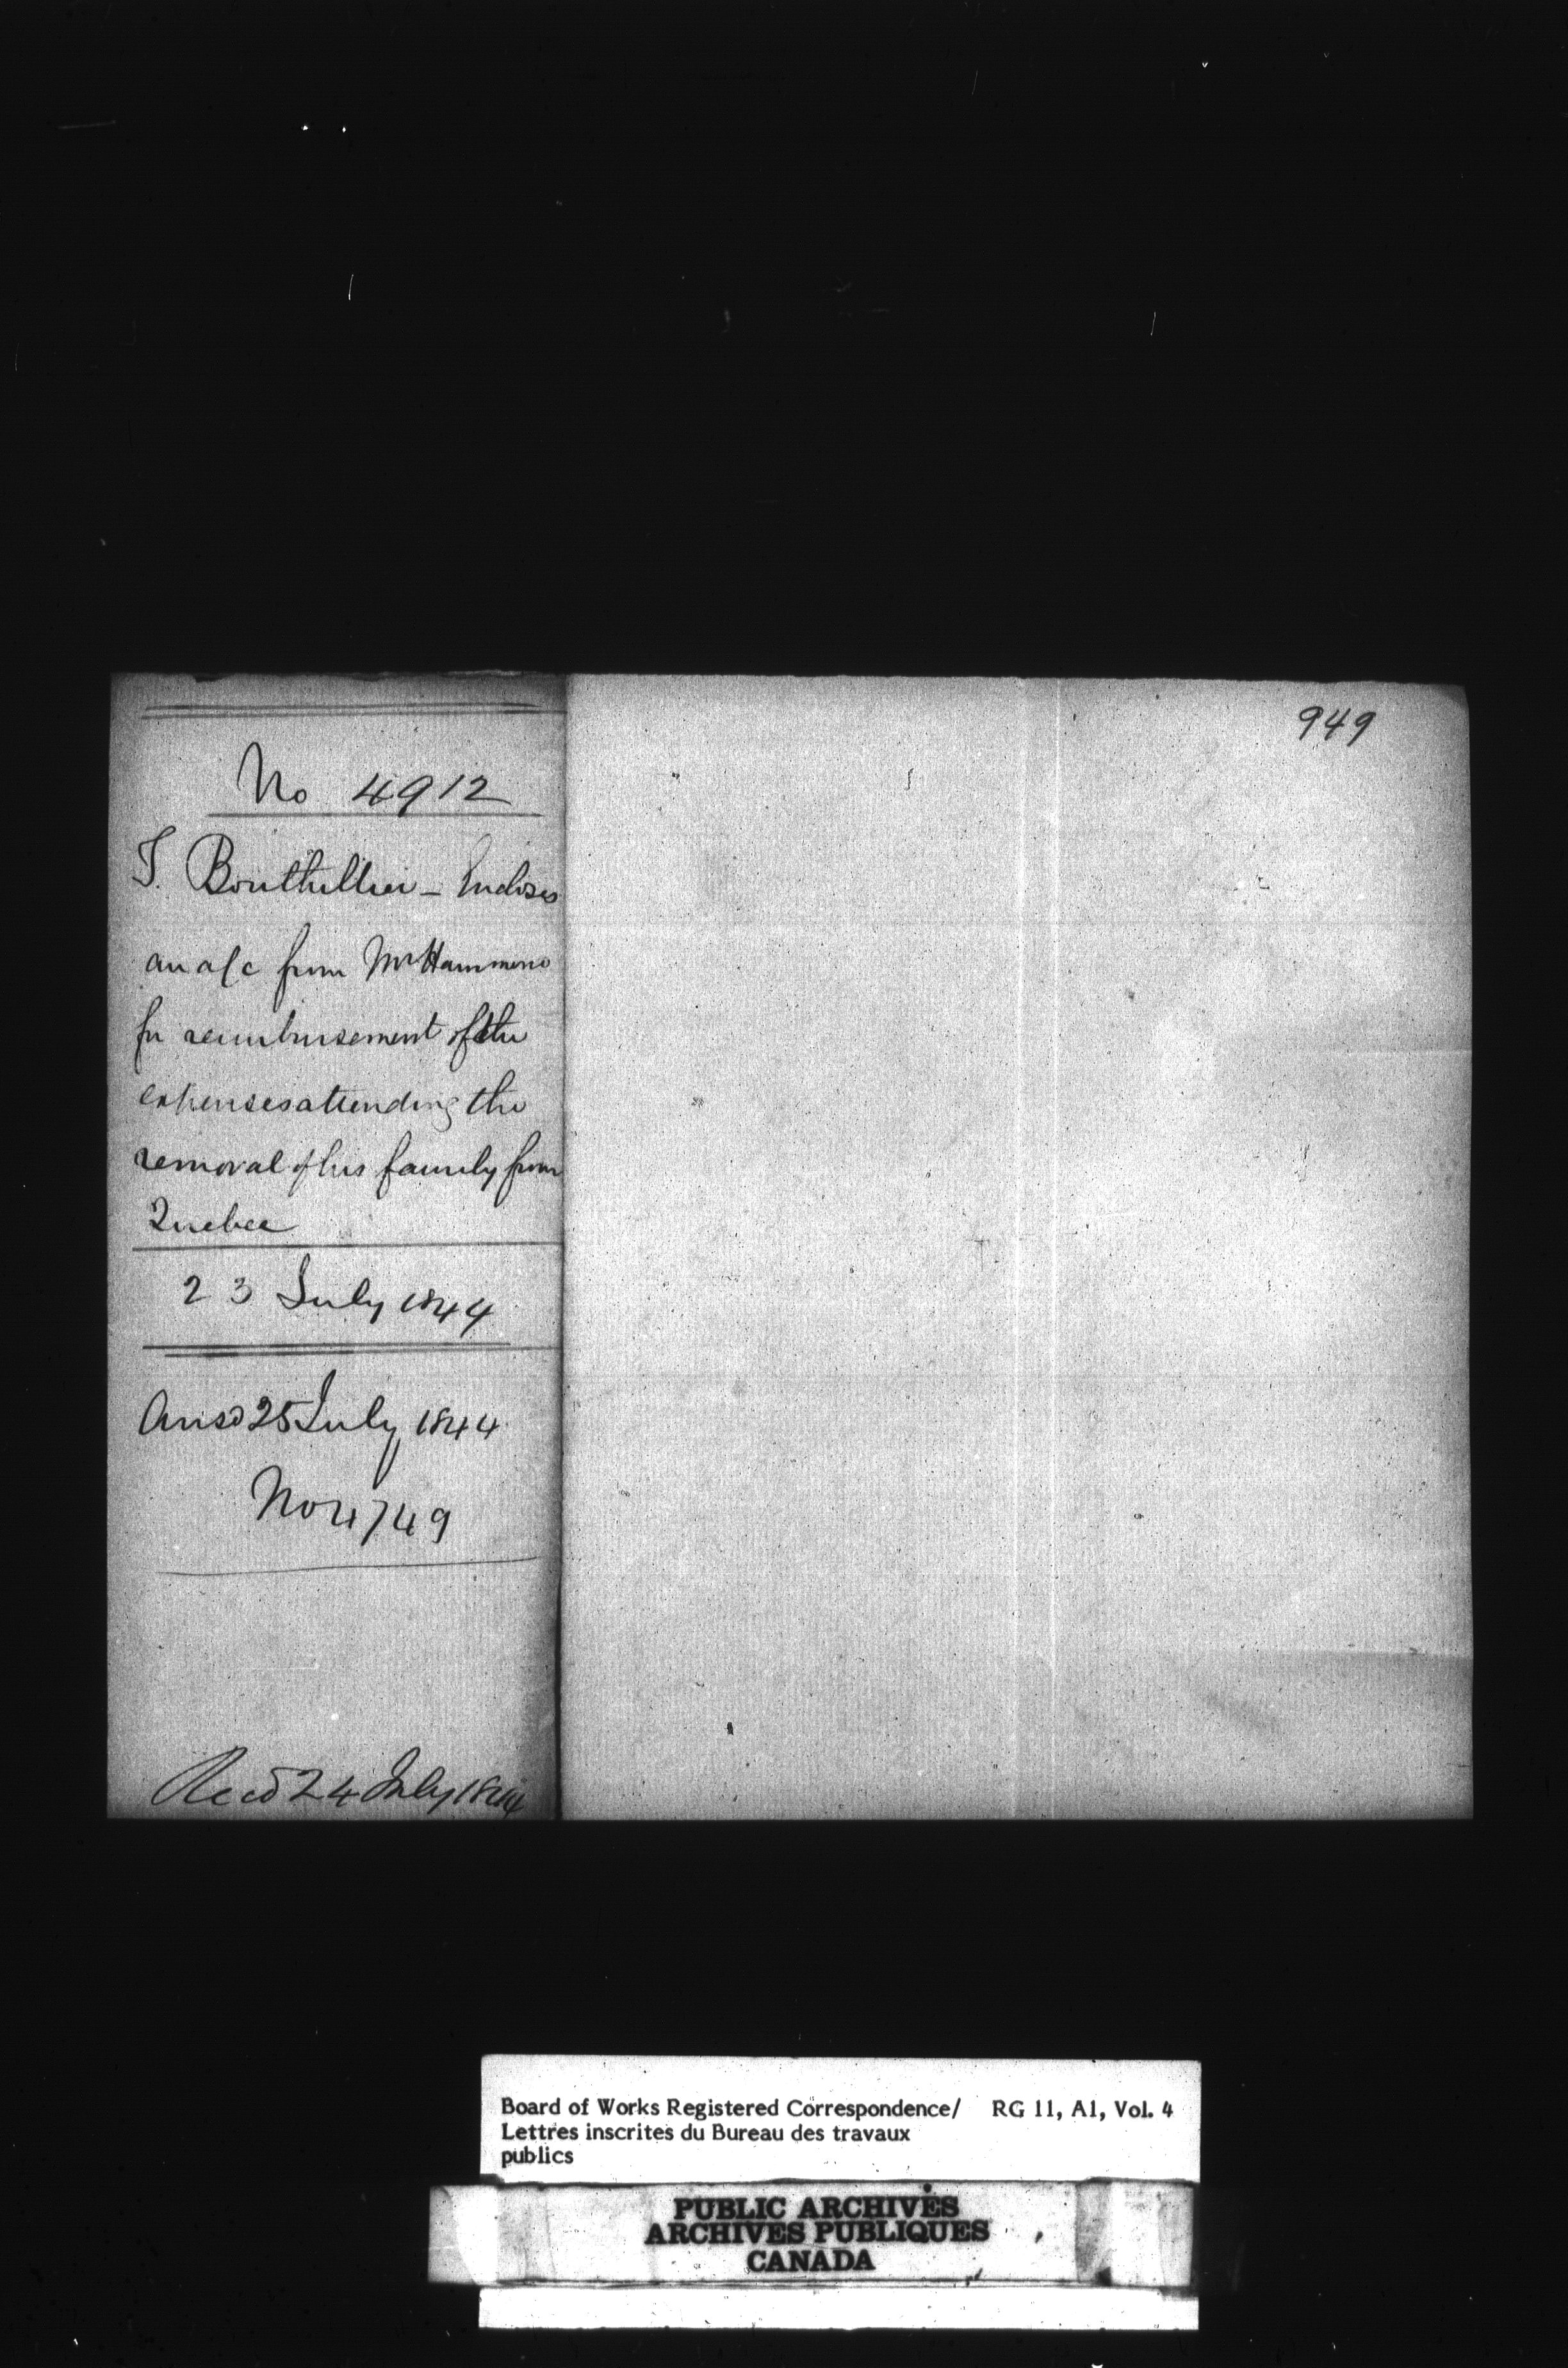 949
No 4912
T. Bouthillier - Encloses
an a/c from Mr Hammond
for reimbursement of the
expenses attending the
removal of his family from
Quebec
23 July 1844
Ansd 25 July 1844
No 4749
Recd 24 July 1844
Board of Works Registered Correspondence/ RG 11, A1, Vol. 4
Lettres inscrites du Bureau des travaux
publics
PUBLIC ARCHIVES
ARCHIVES PUBLIQUES
CANADA